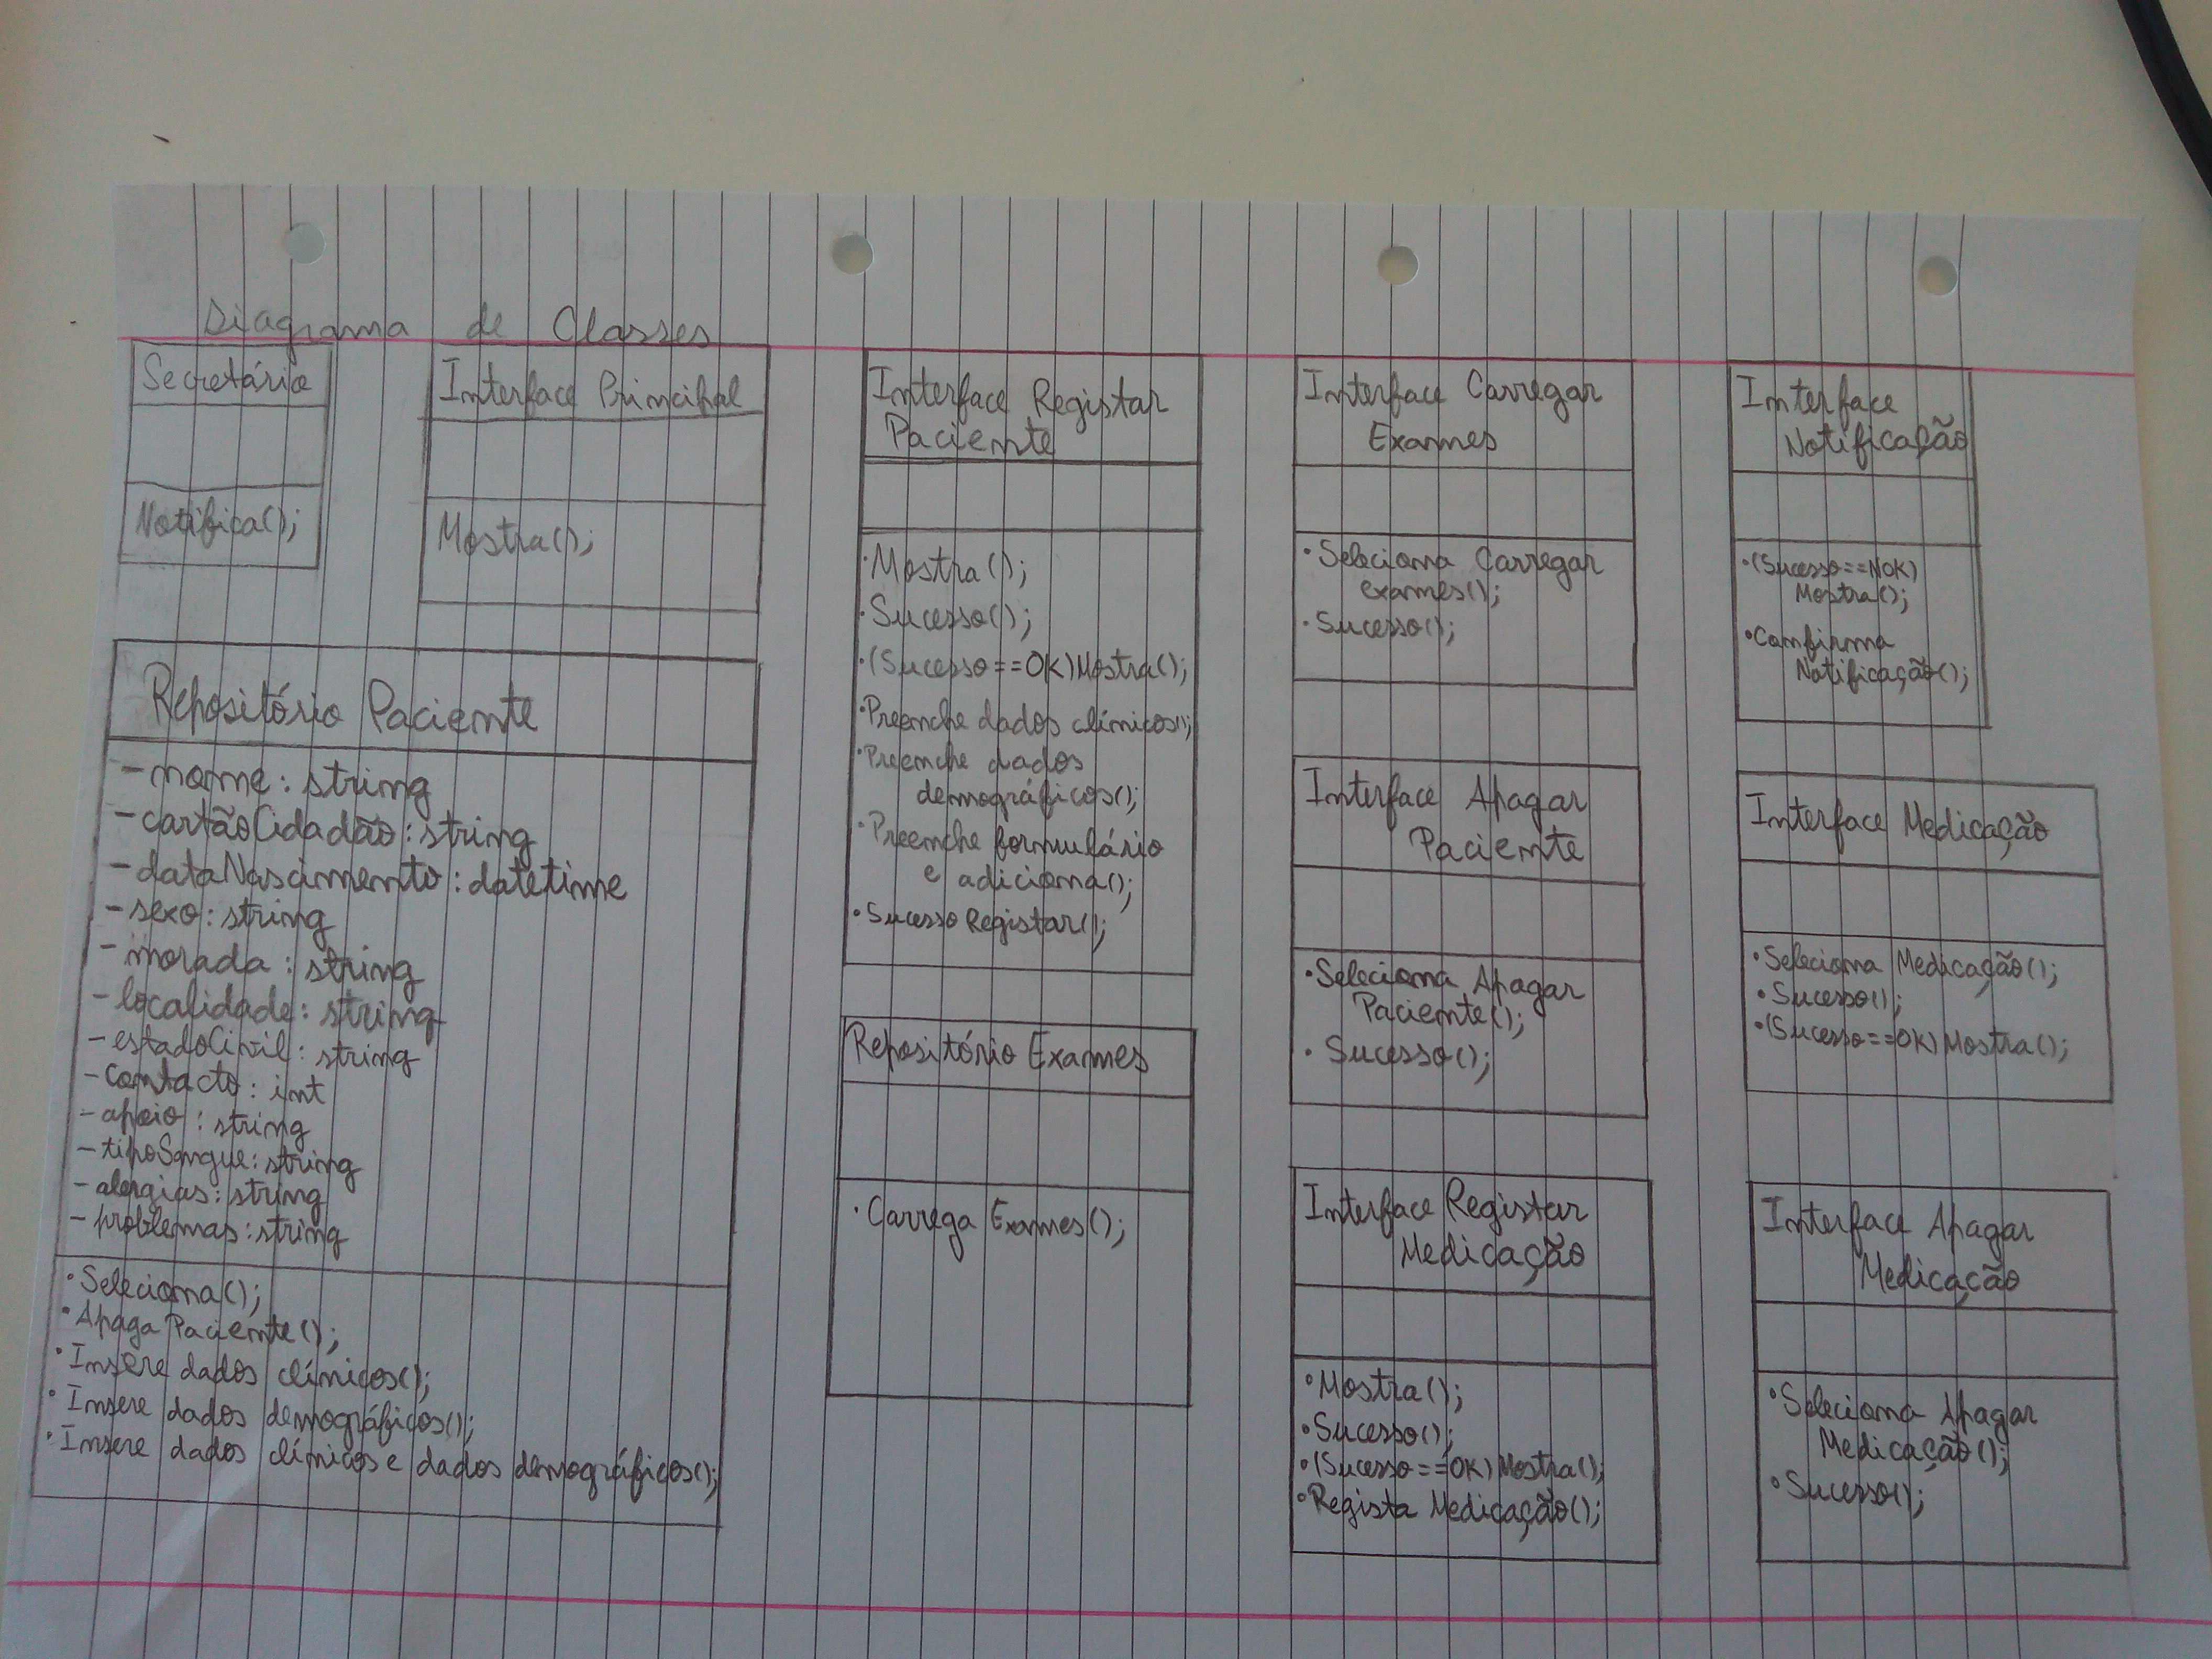 Diagrama de Classes
Secretário
Notifica();
Interface Principal
Mostra();
Repositório Paciente
- nome: string
- cartãoCidadão: string
- dataNascimento: datetime
- sexo: string
- morada: string
- localidade: string
- estadoCivil: string
- Contacto: int
- apoio: string
- tipoSangue: string
- alergias: string
- problemas: string
• Seleciona();
• Apaga Paciente();
• Insere dados clínicos();
• Insere dados demográficos();
• Insere dados clínicos e dados demográficos();
Interface Registar
Paciente
• Mostra();
• Sucesso();
• (Sucesso==OK) Mostra();
• Preenche dados clínicos();
• Preenche dados
demográficos();
• Preenche formulário
e adiciona();
• Sucesso Registar();
Repositório Exames
• Carrega Exames();
Interface Carregar
Exames
• Seleciona Carregar
exames();
• Sucesso();
Interface Apagar
Paciente
• Seleciona Apagar
Paciente();
• Sucesso();
Interface Registar
Medicação
• Mostra();
• Sucesso();
• (Sucesso==OK) Mostra();
• Regista Medicação();
Interface
Notificação
• (Sucesso==NOK)
Mostra();
• Confirma
Notificação();
Interface Medicação
• Seleciona Medicação();
• Sucesso();
• (Sucesso==OK) Mostra();
Interface Apagar
Medicação
• Seleciona Apagar
Medicação();
• Sucesso();